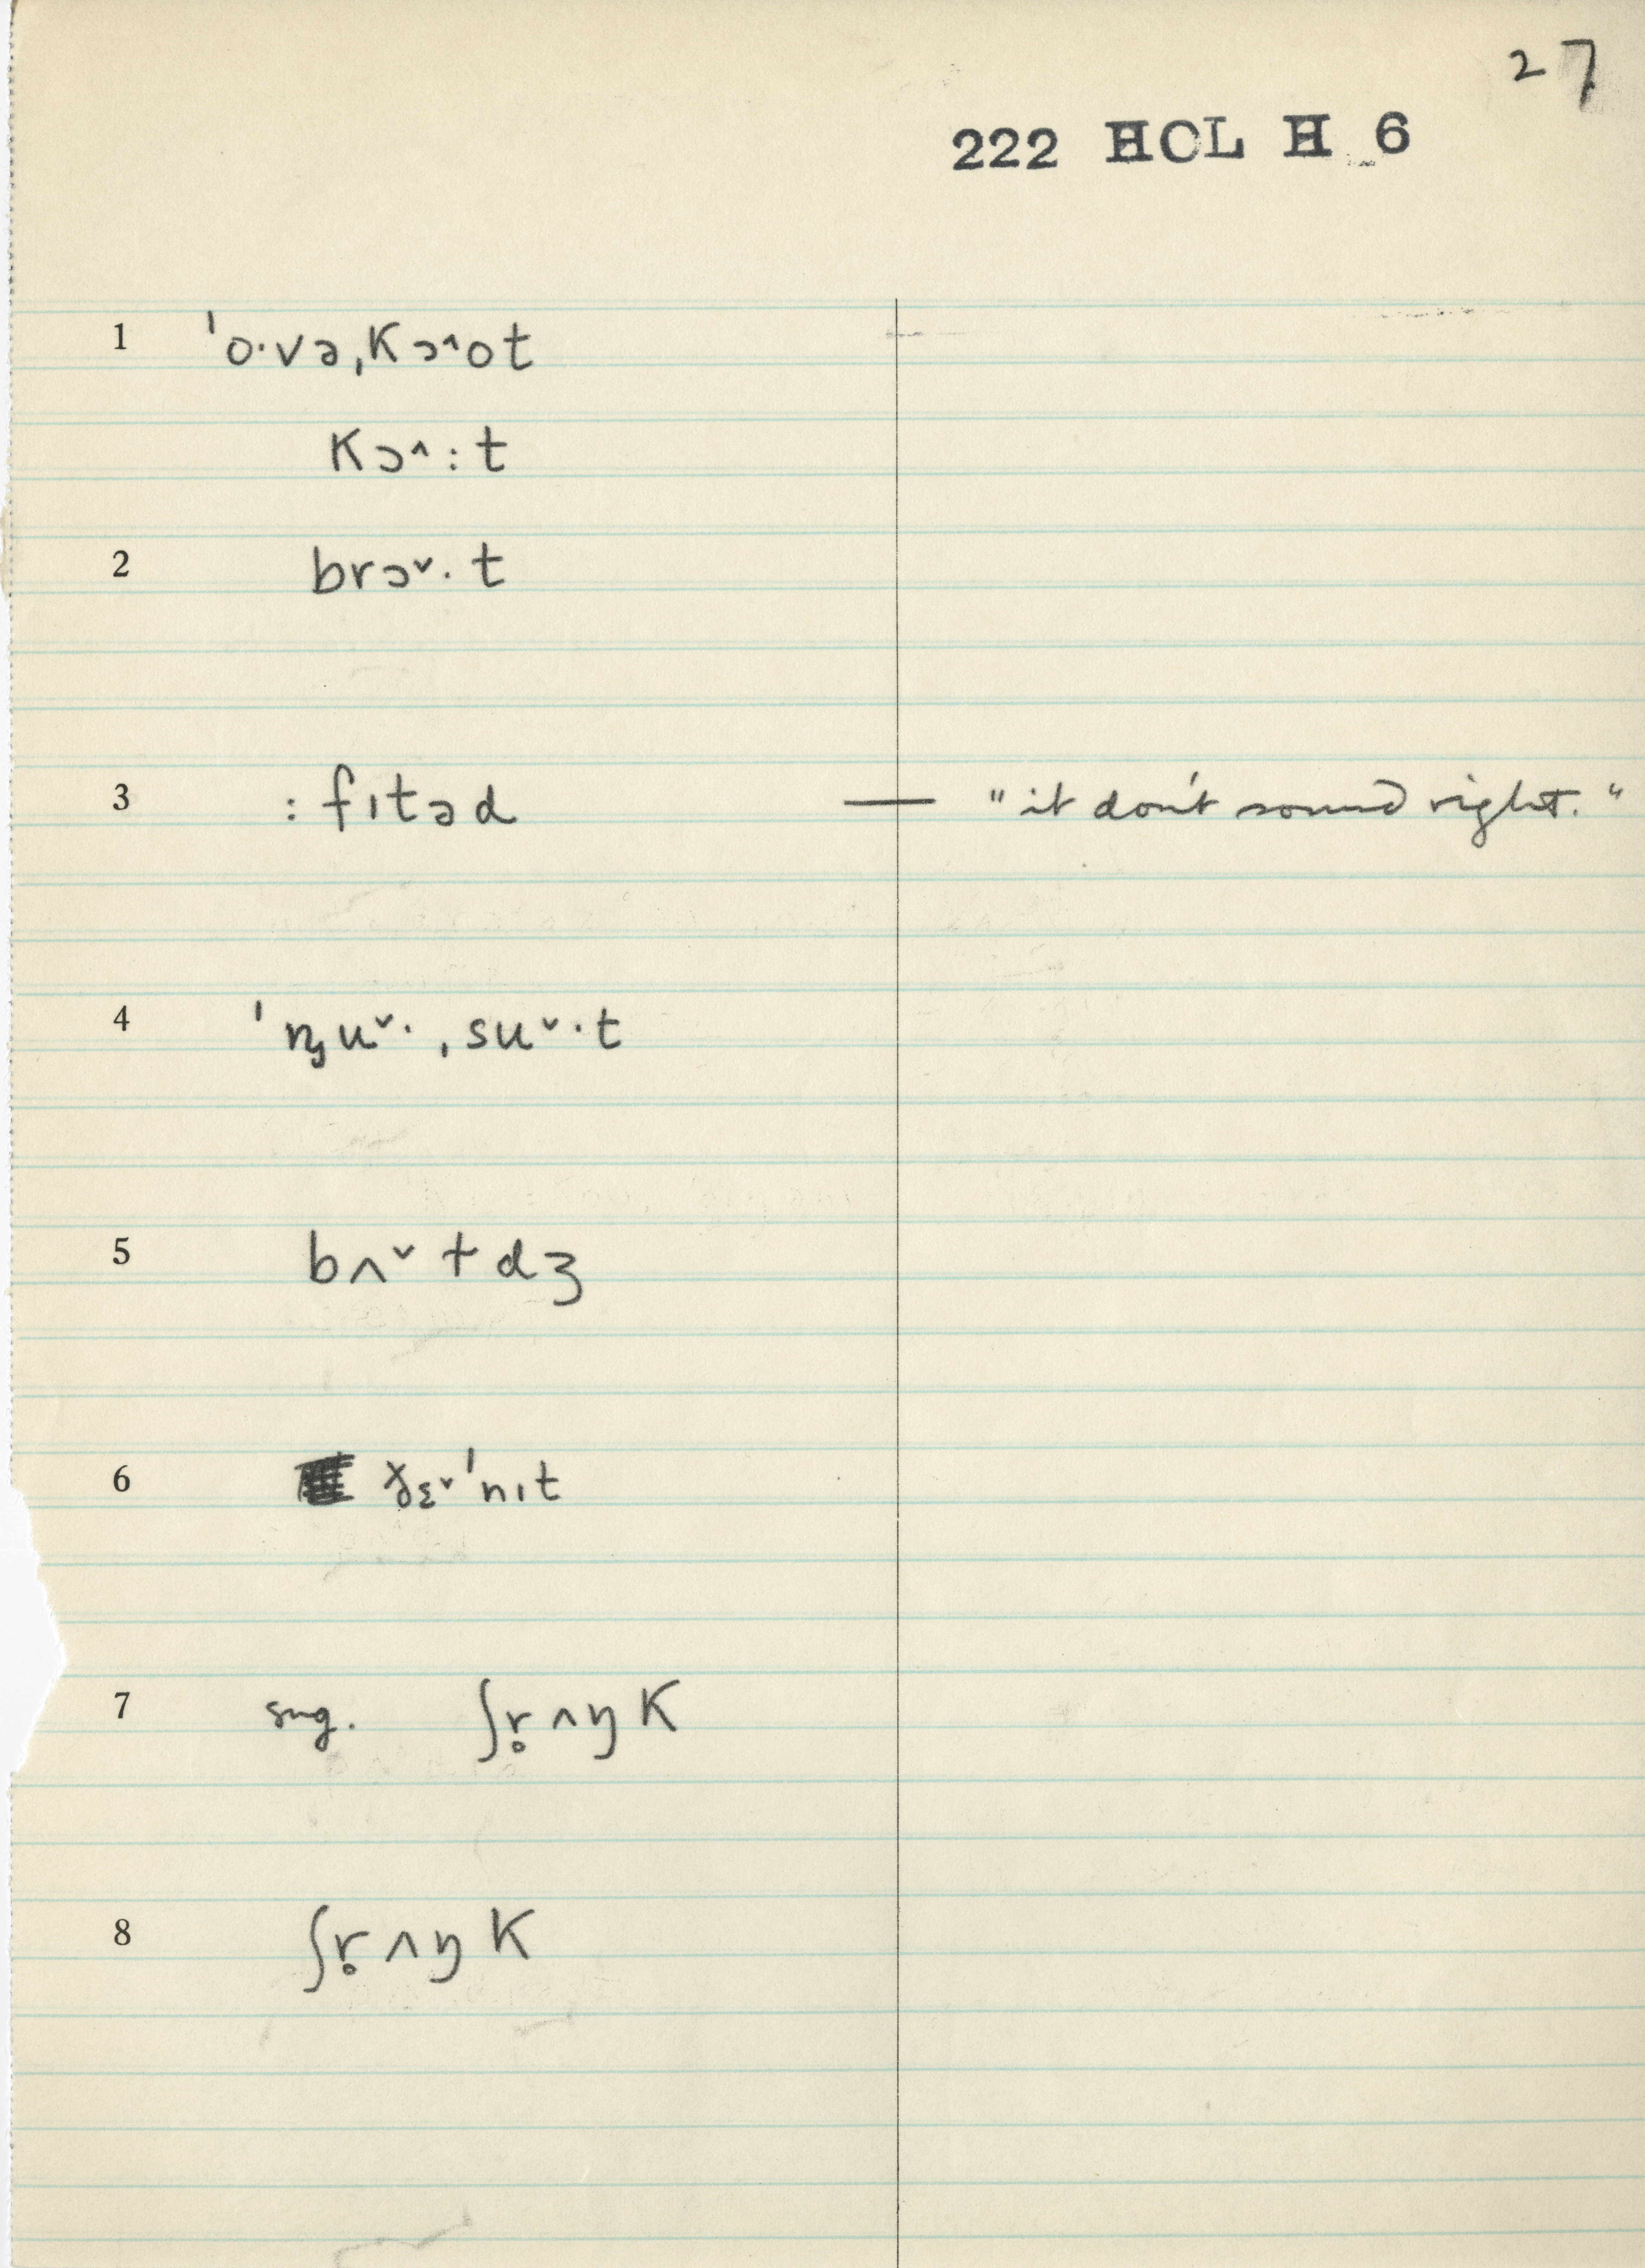 27
222 HOL H 6
1 ˈo·vəˌkɔ^ot
kɔ^:t
2 brɔˇ·t
3 :fɪtəd — "it don't sound right."
4 ˈnȷuˇ·ˌsuˇ·t
5 bʌˇtdʒ
6 ɟɛˇˈnɪt
7 sug. ʃr̥ʌŋk
8 ʃr̥ʌŋk